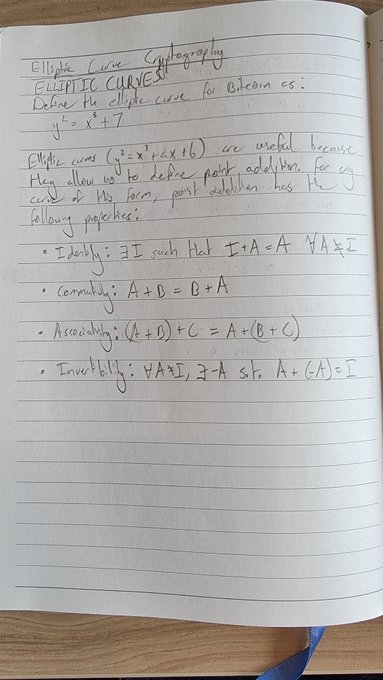 Elliptic Curve Cryptography
ELLIPTIC CURVES
Define the elliptic curve for Bitcoin as:
y² = x³ + 7
Elliptic curves (y² = x³ + ax + b) are useful because
they allow us to define point addition. For any
curve of this form, point addition has the
following properties:
• Identity: ∃I such that I + A = A ∀A ≠ I
• Commutivity: A + B = B + A
• Associativity: (A + B) + C = A + (B + C)
• Invertibility: ∀A ≠ I, ∃ -A s.t. A + (-A) = I